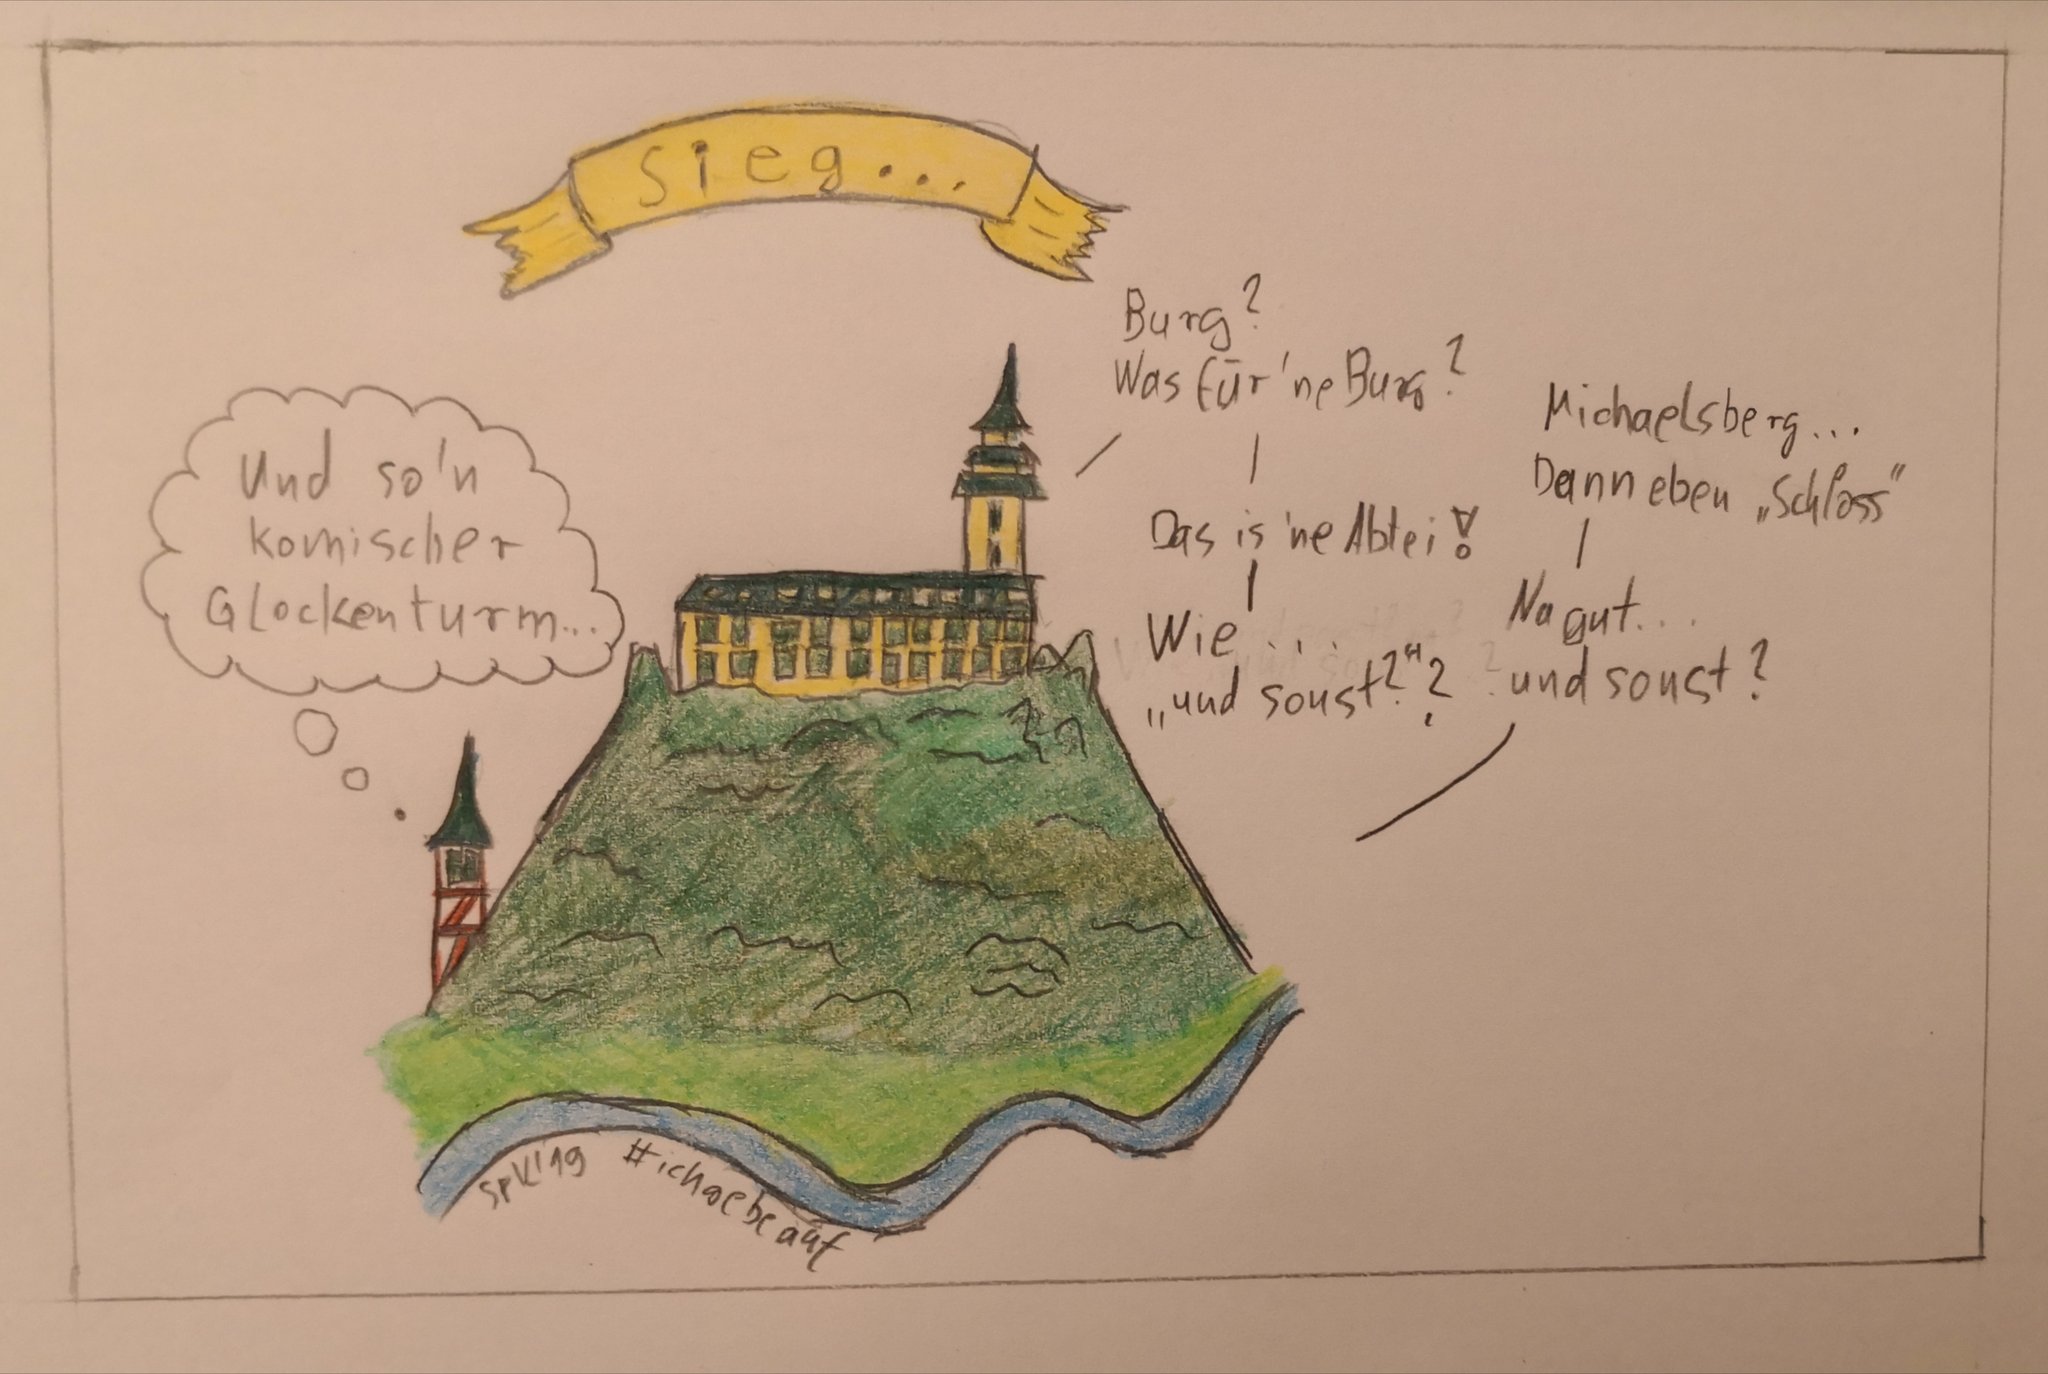 Sieg...
Burg?
Was für 'ne Burg?
Das is 'ne Abtei!
Wie . . .
„und sonst?“?
Michaelsberg...
Dann eben „Schloss“
Na gut...
und sonst?
Und so'n
komischer
Glockenturm...
SpK'19 #ichgebeauf